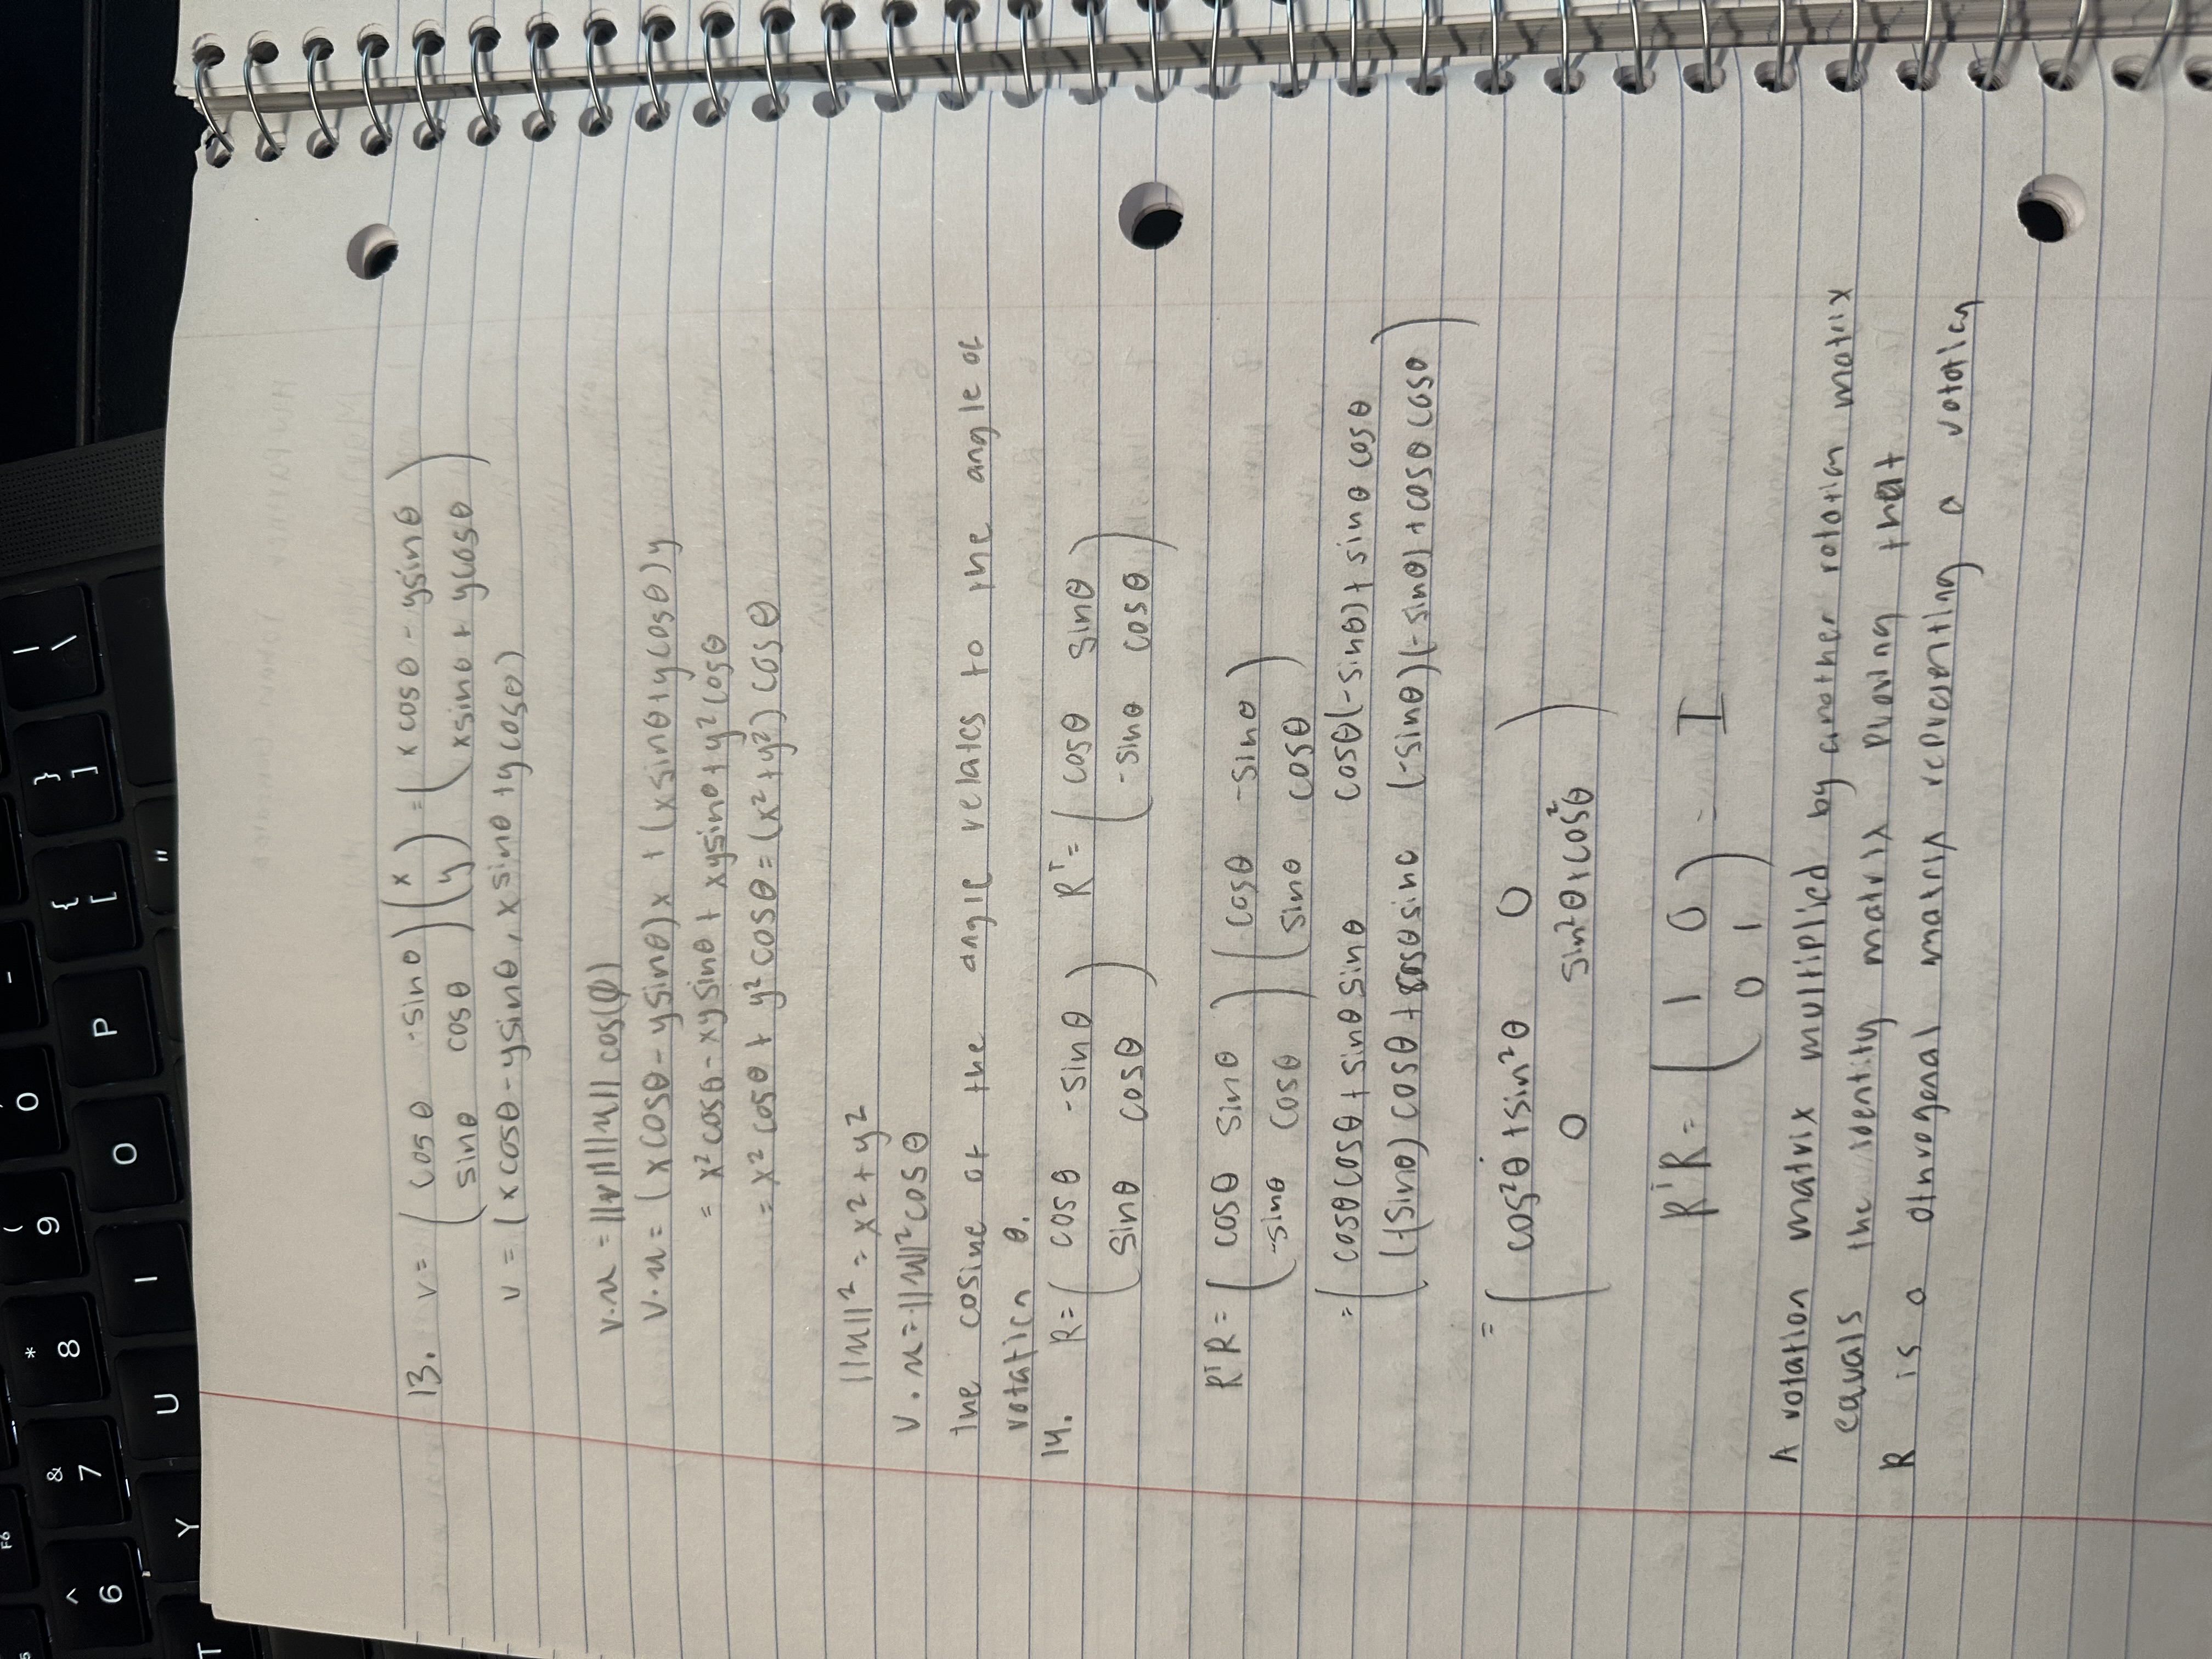 F6
( 9
0
* 8
& 7
^ 6
{ [
} ]
| \
T Y U I O P
"
13. v = ( cos θ -sin θ ) ( x ) = ( x cos θ - y sin θ )
( sin θ cos θ ) ( y ) ( x sin θ + y cos θ )
v = ( x cos θ - y sin θ , x sin θ + y cos θ )
v·u = ||v|| ||u|| cos(φ)
v·u = (x cos θ - y sin θ)x + (x sin θ + y cos θ)y
= x² cos θ - xy sin θ + xy sin θ + y² cos θ
= x² cos θ + y² cos θ = (x² + y²) cos θ
||u||² = x² + y²
v·u = ||u||² cos θ
the cosine of the angle relates to the angle of
rotation θ.
14. R = ( cos θ -sin θ ) Rᵀ = ( cos θ sin θ )
( sin θ cos θ ) ( -sin θ cos θ )
RᵀR = ( cos θ sin θ ) ( cos θ -sin θ )
( -sin θ cos θ ) ( sin θ cos θ )
= ( cos θ cos θ + sin θ sin θ cos θ(-sin θ) + sin θ cos θ )
( (-sin θ) cos θ + cos θ sin θ (-sin θ)(-sin θ) + cos θ cos θ )
= ( cos² θ + sin² θ 0 )
( 0 sin² θ + cos² θ )
RᵀR = ( 1 0 ) = I
( 0 1 )
A rotation matrix multiplied by another rotation matrix
equals the identity matrix proving that
R is a othrogonal matrix representing a rotation